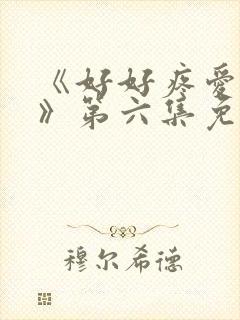 《好好疼爱
》第六集免
穆尔希德